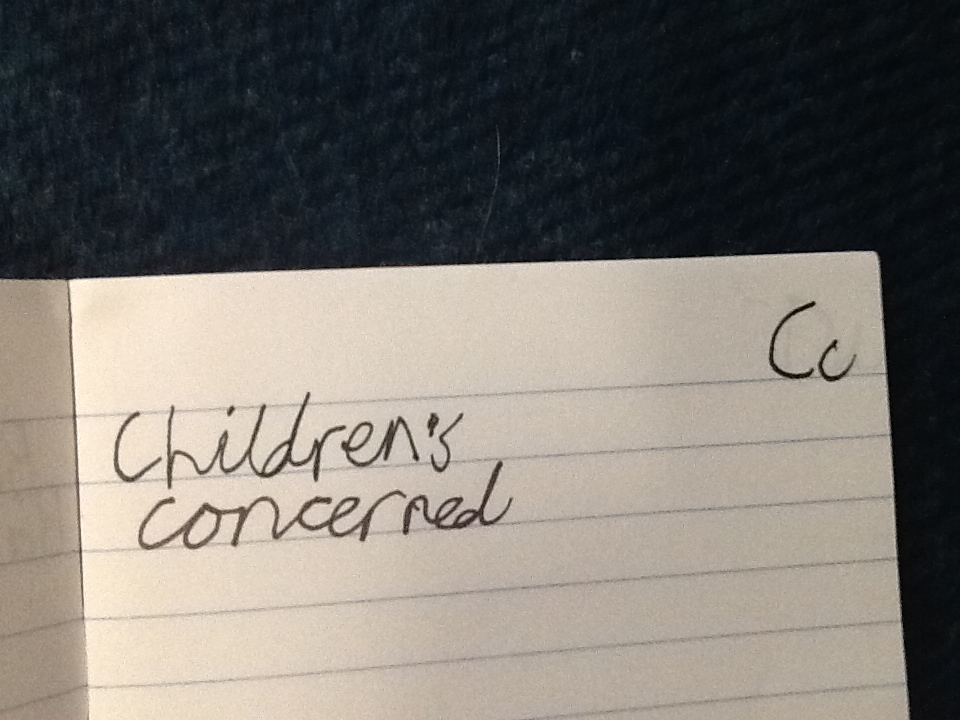 Cc
Children's
concerned